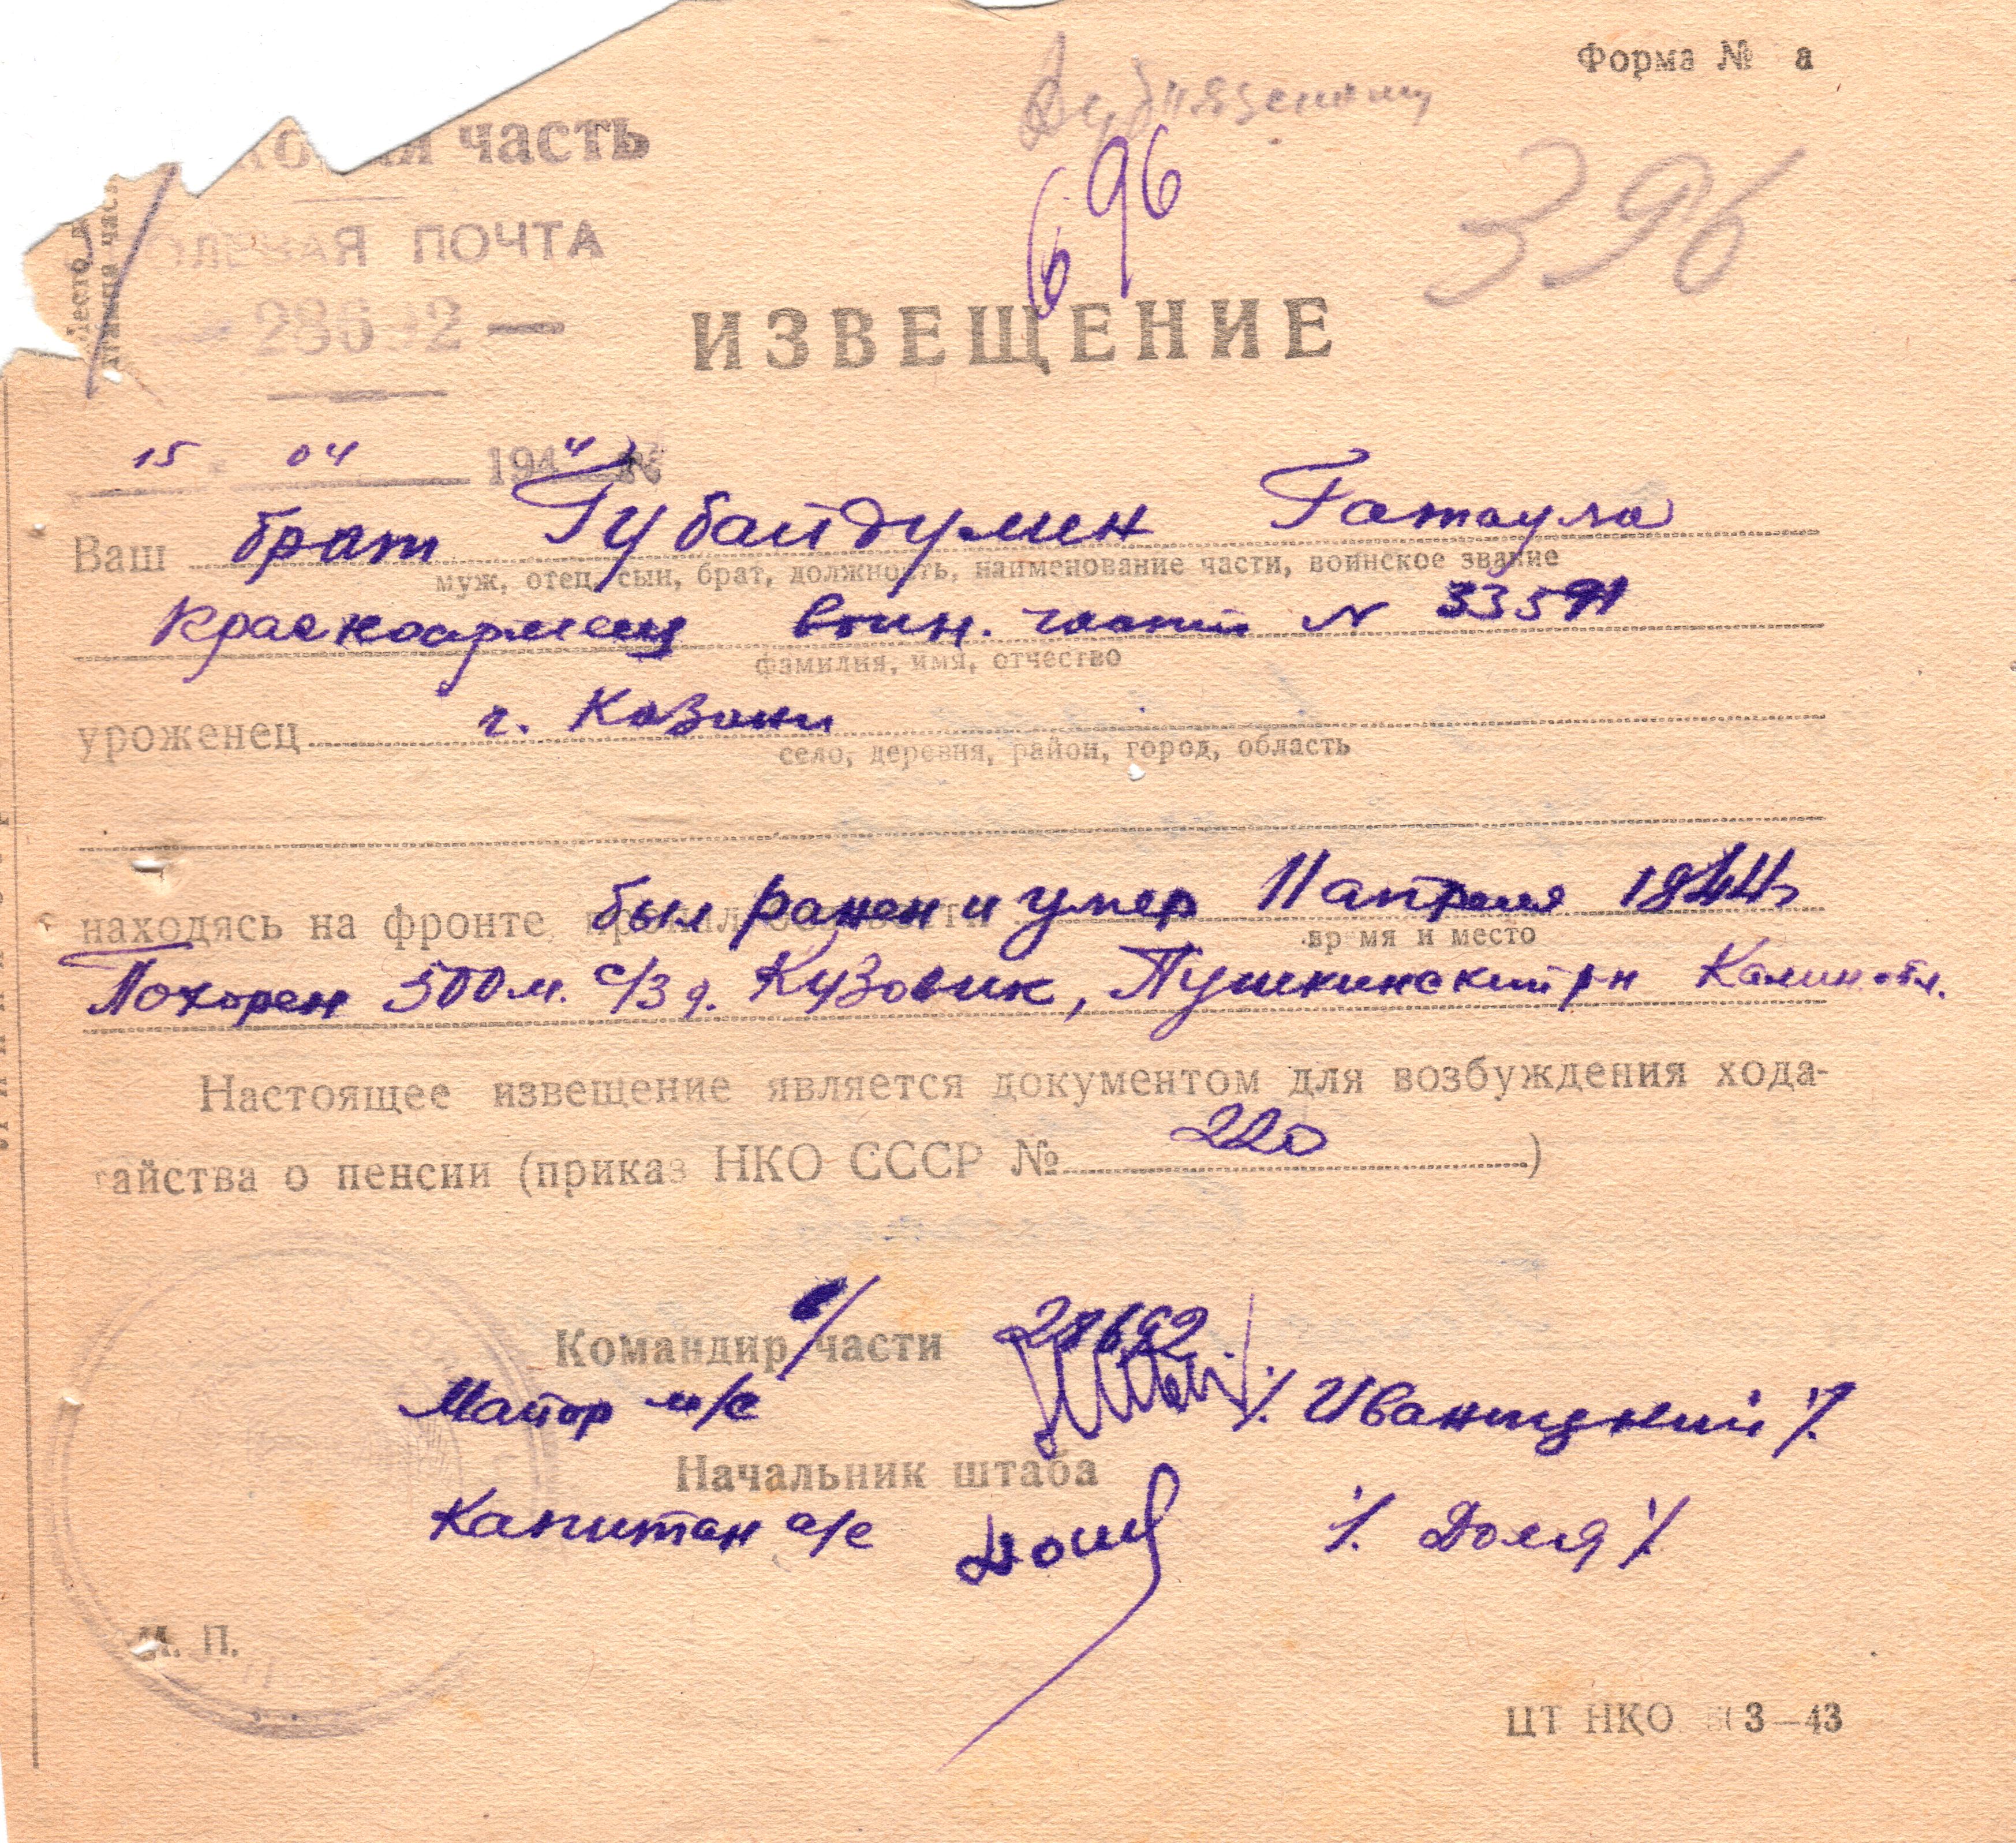 Форма № а
часть
ПОЛЕВАЯ ПОЧТА
696
396
— 28692 —
ИЗВЕЩЕНИЕ
15 04 1944
Ваш брат Губайдулин Гатаула
муж, отец, сын, брат, должность, наименование части, воинское звание
Красноармеец воин. части N
фамилия, имя, отчество
уроженец г. Казани
село, деревня, район, город, область
находясь на фронте был ранен и умер 11 апреля 1944
время и место
Похорен 500 м. с/з д. Кузовик, Пушкинский рн Калин. обл.
Настоящее извещение является документом для возбуждения хода-
тайства о пенсии (приказ НКО СССР № 220)
Командир части 28692
Майор м/с /. Иваницкий /.
Начальник штаба
Капитан а/с /. Доля /.
М. П.
ЦТ НКО 3—43